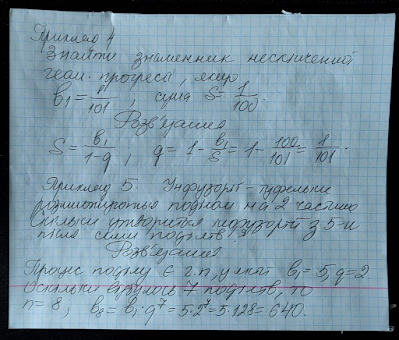 Приклад 4
Знайти знаменник нескінченої
геом. прогресії, якщо
b₁ = 1/101, сума S = 1/100.
Розв'язання
S = b₁/(1-q), q = 1 - b₁/S = 1 - 100/101 = 1/101.
Приклад 5. Інфузорії-туфельки
розмножаються поділом на 2 частини
Скільки утвориться інфузорій з 5-и
після семи поділів?
Розв'язання
Процес поділу є г.п, у якої b₁ = 5, q = 2
Оскільки відбулось 7 поділів, то
n = 8, b₈ = b₁·q⁷ = 5·2⁷ = 5·128 = 640.